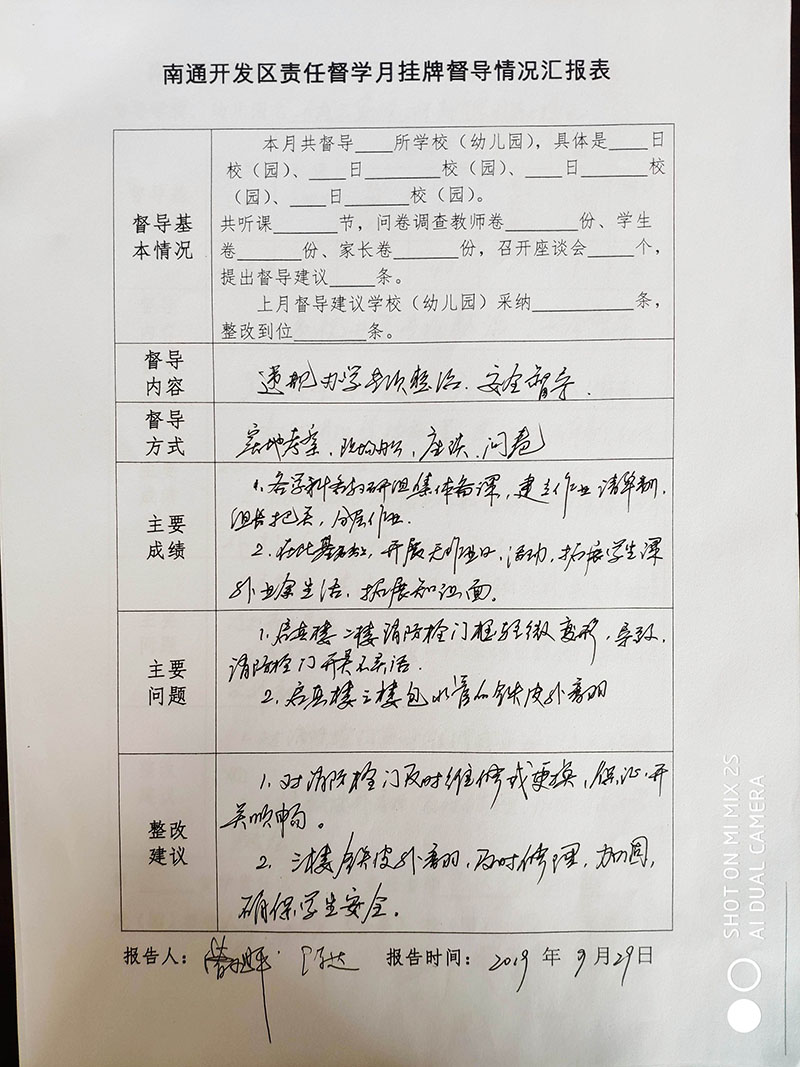 南通开发区责任督学月挂牌督导情况汇报表
督导基
本情况
本月共督导____所学校（幼儿园），具体是____日
校（园）、____日________校（园）、____日________校
（园）、____日________校（园）。
共听课_______节，问卷调查教师卷________份、学生
卷_______份、家长卷_______份，召开座谈会_____个，
提出督导建议_____条。
上月督导建议学校（幼儿园）采纳___________条，
整改到位________条。
督导
内容
违规办学专项整治．安全督导．
督导
方式
实地考察、现场、座谈、问卷
主要
成绩
1. 各学科教研组集体备课，建立作业清单制，
组长把关，分层作业．
2. 在此基础上，开展无作业日，活动，拓展学生课
外业余生活，拓展知识面。
主要
问题
1. 启真楼二楼消防栓门框轻微变形，导致，
消防栓门开关不灵活．
2. 启真楼三楼包水管的铁皮外翻
整改
建议
1. 对消防栓门及时维修或更换，保证开
关顺畅。
2. 三楼铁皮外翻，及时修理，加固，
确保学生安全。
报告人： 报告时间： 2019 年 9月29日
SHOT ON MI MIX 2S
AI DUAL CAMERA